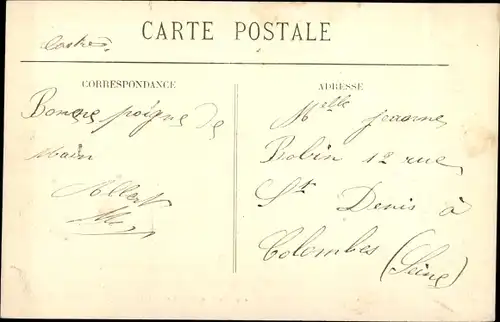 CARTE POSTALE
Castres.
CORRESPONDANCE
Bonne poigne de
Main
Albert
ADRESSE
Melle Jeanne
Bobin 12 rue
St Denis à
Colombes (Seine)